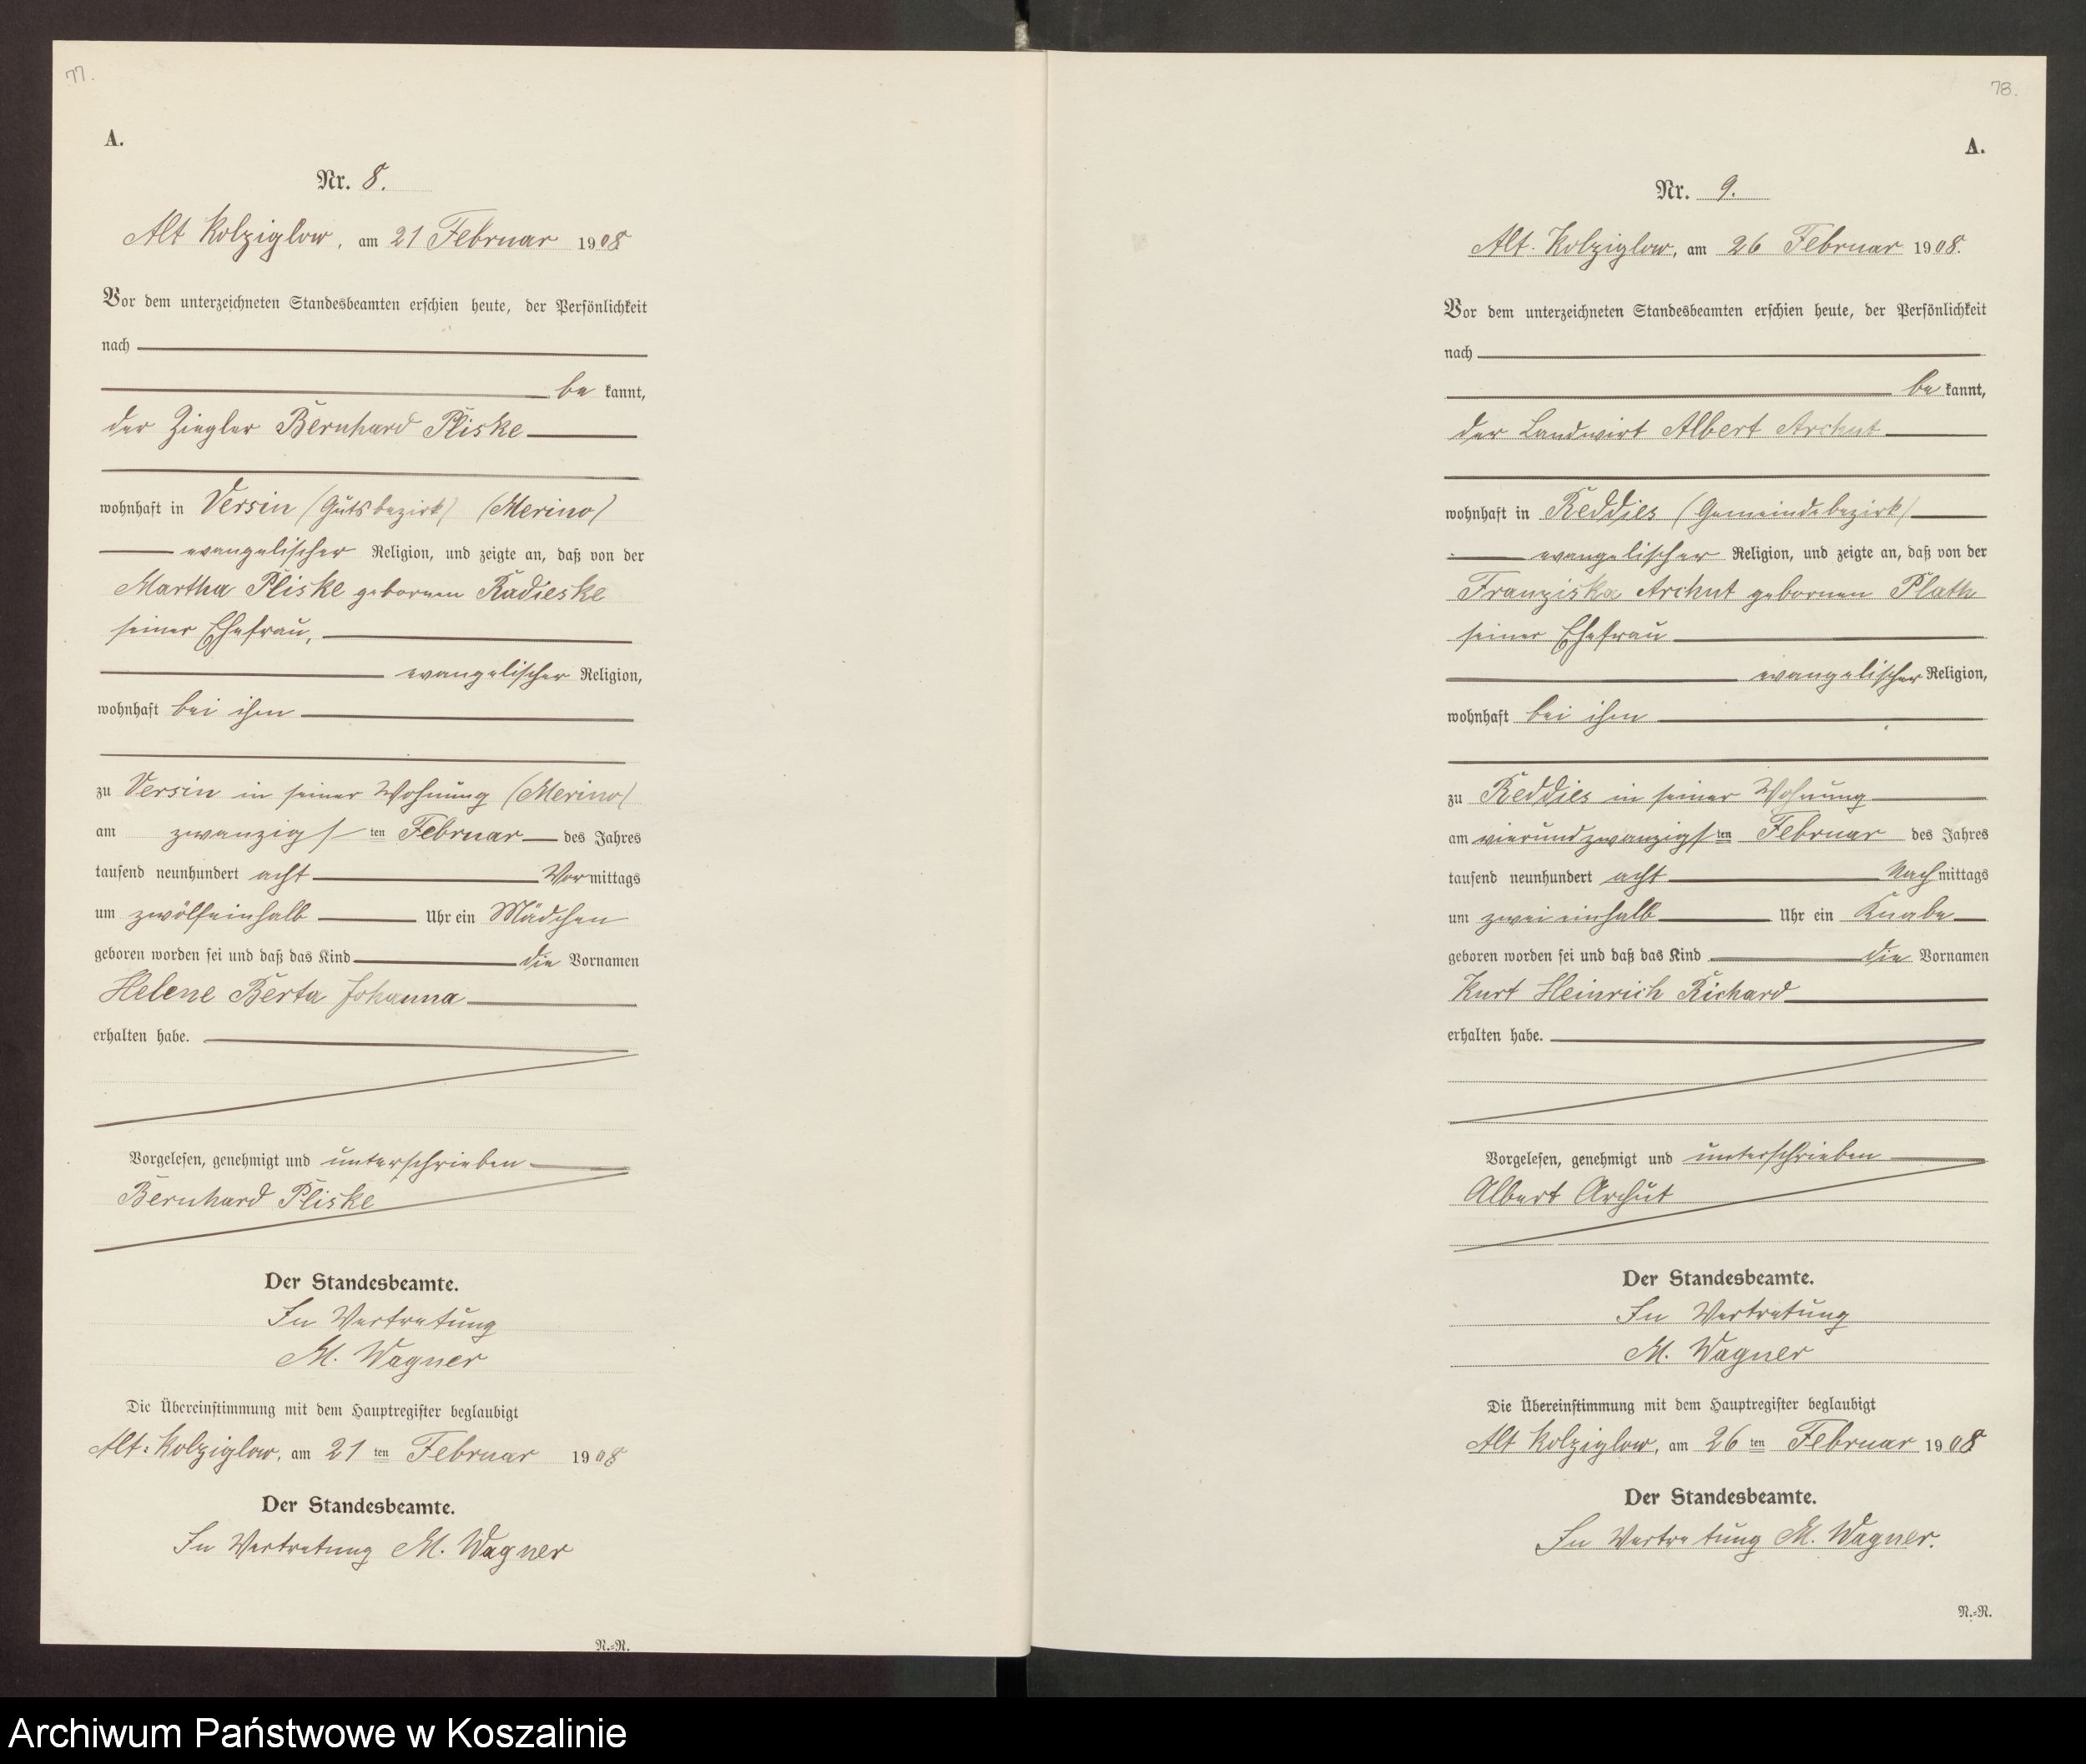 77.
A.
Nr. 8.
Alt Kolziglow, am 21 Februar 1908
Vor dem unterzeichneten Standesbeamten erschien heute, der Persönlichkeit
nach
be kannt,
der Ziegler Bernhard Pliske
wohnhaft in Versin (Gutsbezirk) (Merino)
evangelischer Religion, und zeigte an, daß von der
Martha Pliske gebornen Radieske
seiner Ehefrau,
evangelischer Religion,
wohnhaft bei ihm
zu Versin in seiner Wohnung (Merino)
am zwanzigsten Februar des Jahres
tausend neunhundert acht Vormittags
um zwölfeinhalb Uhr ein Mädchen
geboren worden sei und daß das Kind die Vornamen
Helene Berta Johanna
erhalten habe.
Vorgelesen, genehmigt und unterschrieben
Bernhard Pliske
Der Standesbeamte.
In Vertretung
M. Wagner
Die Übereinstimmung mit dem Hauptregister beglaubigt
Alt-Kolziglow, am 21 ten Februar 1908
Der Standesbeamte.
In Vertretung M. Wagner
N.=R.
78.
A.
Nr. 9.
Alt-Kolziglow, am 26 Februar 1908.
Vor dem unterzeichneten Standesbeamten erschien heute, der Persönlichkeit
nach
be kannt,
der Landwirt Albert Archut
wohnhaft in Reddies (Gemeindebezirk)
evangelischer Religion, und zeigte an, daß von der
Franziska Archut gebornen Plath
seiner Ehefrau
evangelischer Religion,
wohnhaft bei ihm
zu Reddies in seiner Wohnung
am vierundzwanzigsten Februar des Jahres
tausend neunhundert acht Nachmittags
um zwei einhalb Uhr ein Knabe
geboren worden sei und daß das Kind die Vornamen
Kurt Heinrich Richard
erhalten habe.
Vorgelesen, genehmigt und unterschrieben
Albert Archut
Der Standesbeamte.
In Vertretung
M. Wagner
Die Übereinstimmung mit dem Hauptregister beglaubigt
Alt Kolziglow, am 26 ten Februar 1908
Der Standesbeamte.
In Vertretung M. Wagner.
N.=R.
Archiwum Państwowe w Koszalinie